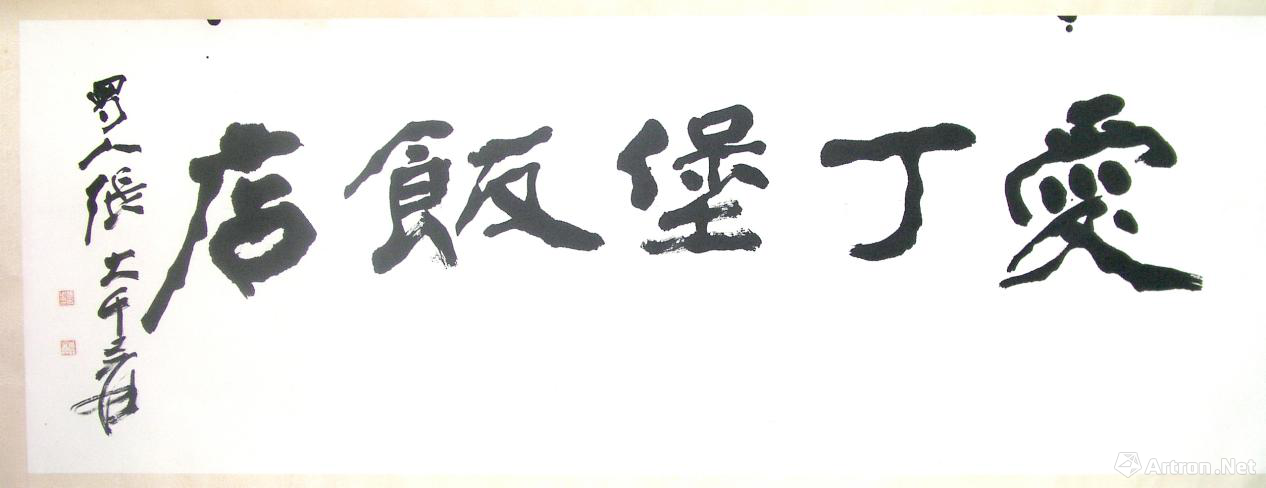 愛丁堡飯店
蜀人張大千爰
Artron.Net